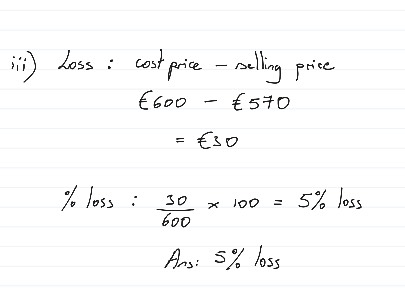 iii) Loss : cost price - selling price
€600 - €570
= €30
% loss : 30/600 × 100 = 5% loss
Ans: 5% loss